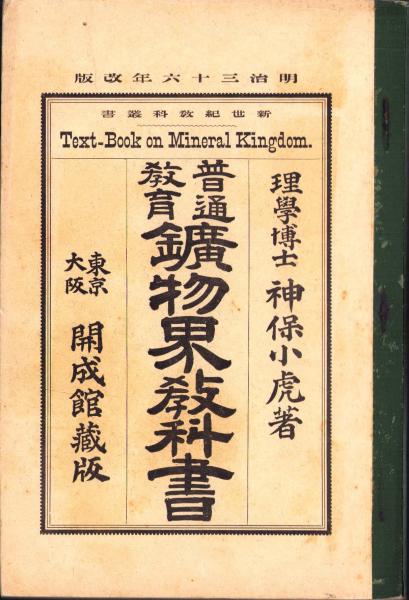 明治三十六年改版
新世紀教科叢書
Text-Book on Mineral Kingdom.
理學博士 神保小虎著
普通
教育
鑛物界教科書
東京
大阪
開成館藏版